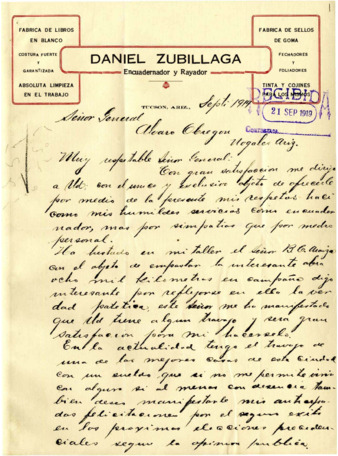 FABRICA DE LIBROS
EN BLANCO
COSTURA FUERTE
Y
GARANTIZADA
ABSOLUTA LIMPIEZA
EN EL TRABAJO
DANIEL ZUBILLAGA
Encuadernador y Rayador
FABRICA DE SELLOS
DE GOMA
FECHADORES
Y
FOLIADORES
TINTA Y COJINES
TUCSON, ARIZ., Sept. 1919
RECIBIDA
21 SEP 1919
Señor General
Alvaro Obregon
Nogales Ariz.
Muy respetable señor General:
Con gran satisfaccion me dirijo
a Ud. con el unico y exclusivo objeto de ofrecerle
por medio de la presente mis respetos haci
como mis humildes servicios como encuader
nador, mas por simpatias que por medro
personal.
Ha hablado en mi taller el señor B. G.
con el objeto de empastar la interesante obra
ocho mil kilometros en campaña digo
interesante por reflejarse en ella la ver
dad patetica, este señor me ha manifestado
que Ud tiene algun trabajo y sera gran
satisfaccion para mi hacerselo.
En la actualidad tengo el trabajo de
una de las mejores casas de esta ciudad
con un sueldo que si no me permite vivir
con alguno si al menos con desencia tam
bien deseo manifestarle mis anticipa
das felicitaciones por el seguro exito
en las proximas elecciones precedenciales
segun la opinion publica.